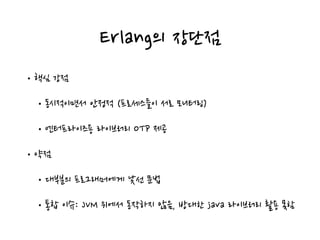 Erlang의 장단점
• 핵심 강점
• 동시적이면서 안정적 (프로세스들이 서로 모니터링)
• 엔터프라이즈용 라이브러리 OTP 제공
• 약점
• 대부분의 프로그래머에게 낯선 문법
• 통합 이슈: JVM 위에서 동작하지 않음, 방대한 java 라이브러리 활용 못함